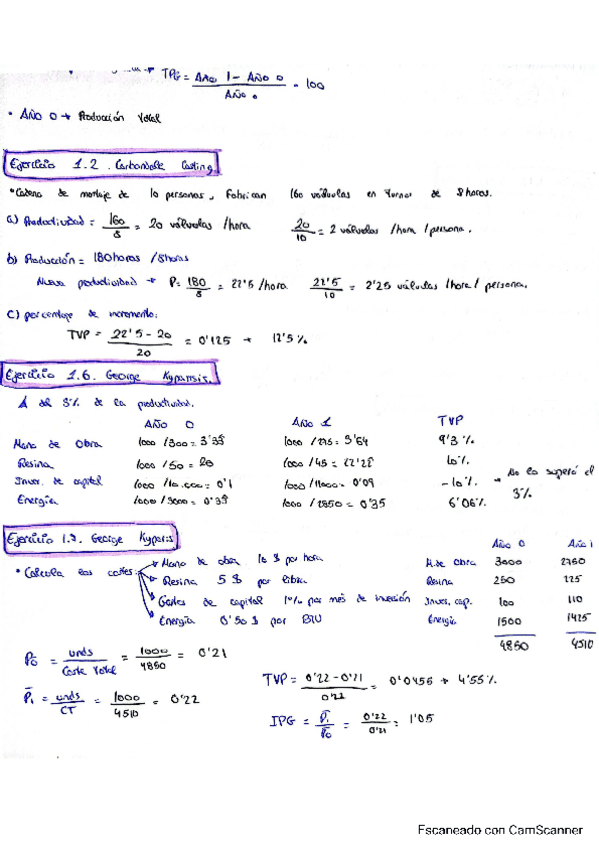 TPG = Año 1 - Año 0 / Año 0 · 100
• Año 0 → Producción total
Ejercicio 1.2. Carbondale Casting
*Cadena de montaje de 10 personas, fabrican 160 válvulas en turnos de 8 horas.
a) Productividad = 160/8 = 20 válvulas /hora 20/10 = 2 válvulas /hora /persona.
b) Producción = 180 horas /8 horas
Nueva productividad → P = 180/8 = 22'5 /hora 22'5/10 = 2'25 válvulas /hora / persona.
c) porcentaje de incremento:
TVP = 22'5 - 20 / 20 = 0'125 → 12'5 %
Ejercicio 1.6. George Kyparisis.
Δ del 3% de la productividad.
Año 0 Año 1 TVP
Mano de Obra 1000 /300 = 3'33 1000 /275 = 3'64 9'3 %
Resina 1000 /50 = 20 1000 /45 = 22'22 10%
Inver. de capital 1000 /10.000 = 0'1 1000 /11000 = 0'09 -10% → No lo superó el 3%
Energía 1000 / 3000 = 0'33 1000 / 2850 = 0'35 6'06%
Ejercicio 1.7. George Kyparis
Año 0 Año 1
• Calcula los costes: → Mano de obra 10 $ por hora M. de Obra 3000 2750
→ Resina 5 $ por libra Resina 250 225
→ Gastos de capital 1% por mes de inversión Inver. cap. 100 110
→ Energía 0'50 $ por BTU Energía 1500 1425
4850 4510
P0 = unds / Coste total = 1000/4850 = 0'21
TVP = 0'22 - 0'21 / 0'22 = 0'0455 → 4'55%
P1 = unds / CT = 1000/4510 = 0'22
IPG = P1/P0 = 0'22/0'21 = 1'05
Escaneado con CamScanner